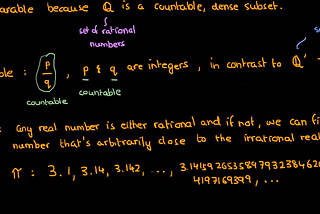 arable because Q is a countable, dense subset.
set of rational
numbers
ble : p/q , p & q are integers , in contrast to Q'
countable
countable
: any real number is either rational and if not, we can fi
number that's arbitrarily close to the irrational rea
π : 3.1, 3.14, 3.142, ..., 3.1415926535897932384626
4197169399, ...